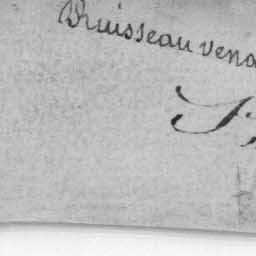 Ruisseau vena
S